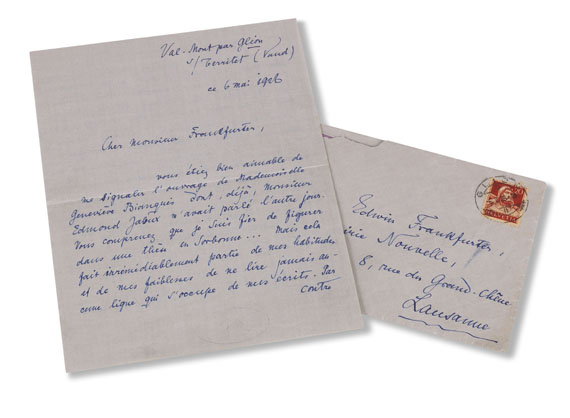 Val-Mont par Glion
s/Territet (Vaud)
ce 6 mai 1926
Cher Monsieur Frankfurter,
vous étiez bien aimable de
me signaler l'ouvrage de Mademoiselle
Geneviève Bianquis dont, déjà, Monsieur
Edmond Jaloux m'avait parlé l'autre jour.
Vous comprenez que je suis fier de figurer
dans une thèse en Sorbonne... Mais cela
fait irrémédiablement partie de mes habitudes
et de mes faiblesses de ne lire jamais au-
cune ligne qui s'occupe de mes écrits. Par
contre
Edwin Frankfurter,
Nouvelle,
8, rue du Grand-Chêne
Lausanne
HELVETIA